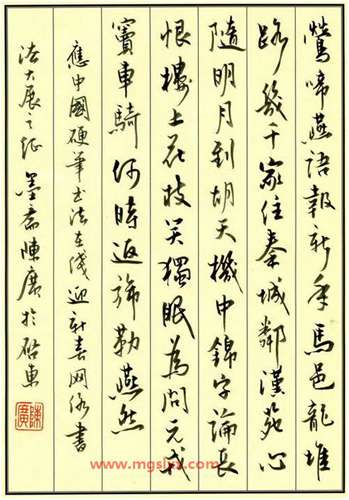 鶯啼燕語報新年馬邑龍堆
路幾千家住秦城鄰漢苑心
隨明月到胡天機中錦字論長
恨樓上花枝笑獨眠為問元戎
竇車騎何時返旆勒燕然
應中國硬筆书法在线迎新春网络書
法大展之征 墨齋陳廣於啟東
陳廣